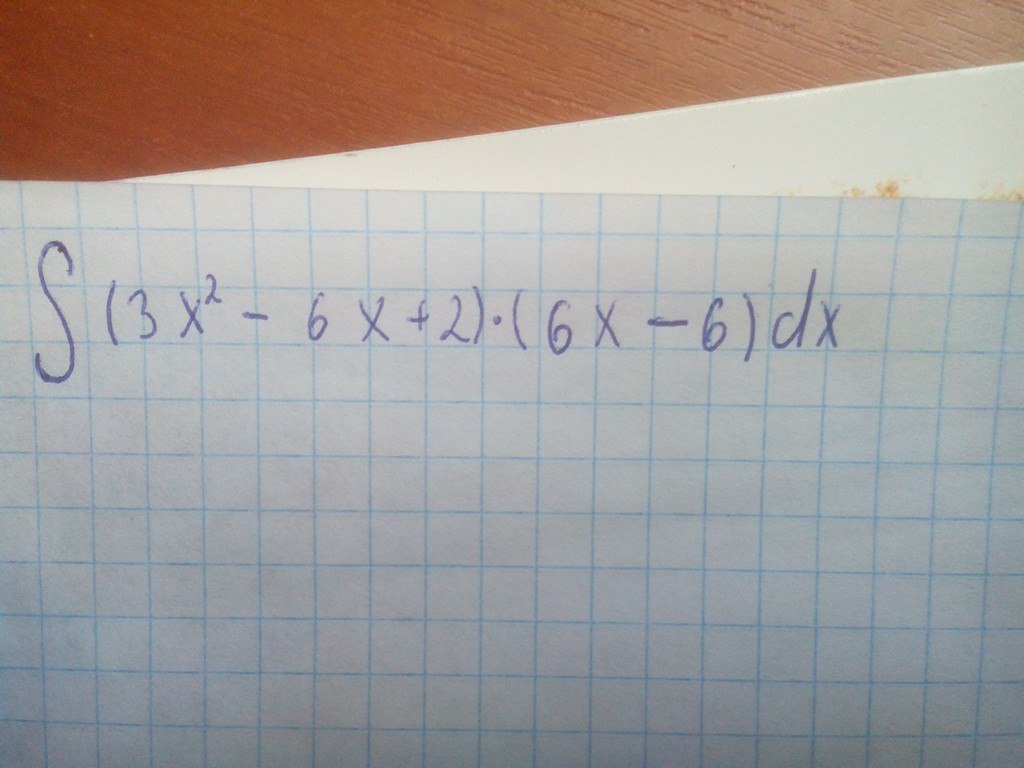 ∫ (3x² - 6x + 2) · (6x - 6) dx